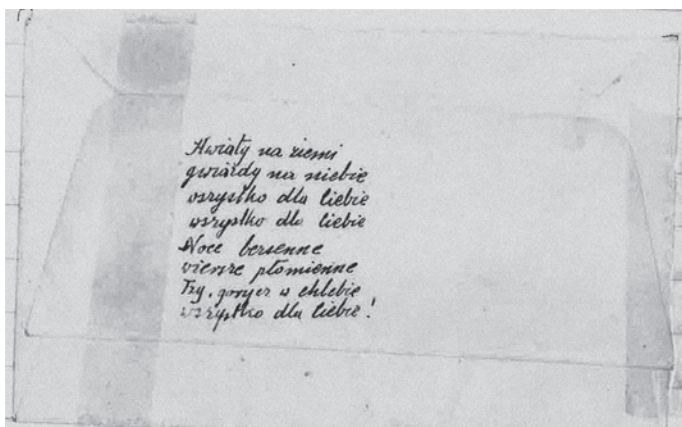 Kwiaty na ziemi
gwiazdy na niebie
wszystko dla Ciebie
wszystko dla Ciebie
Noce bezsenne
wiersze płomienne
Łzy, gorycz w chlebie
wszystko dla Ciebie!